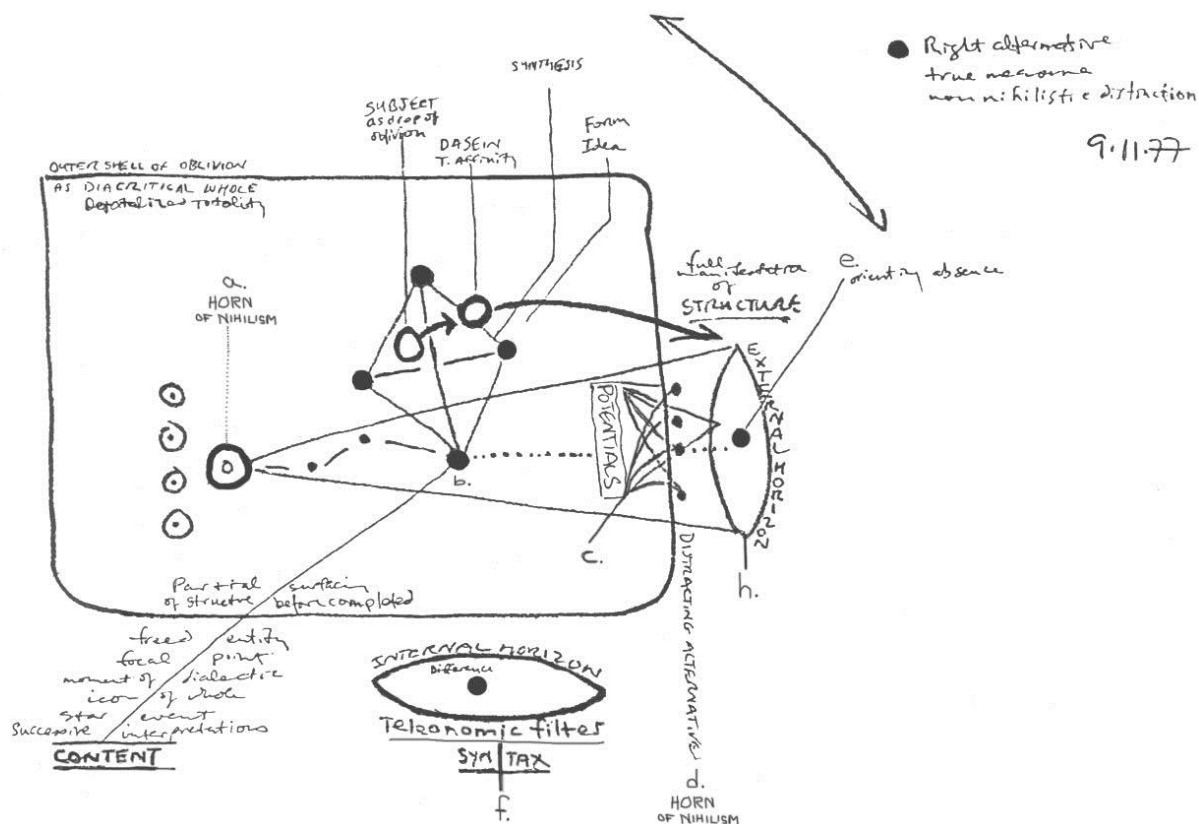 Right alternative
true
non nihilistic distinction
9.11.77
SYNTHESIS
SUBJECT
as drop of
oblivion
DASEIN
T. Affinity
Form
Idea
OUTER SHELL OF OBLIVION
AS DIACRITICAL WHOLE
Detotalized Totality
a.
HORN
OF NIHILISM
full
manifestation
of
STRUCTURE
e.
orienting absence
EXTURNAL HORIZON
POTENTIALS
b.
c.
h.
Partial surfacing
of structre before completed
freed entity
focal point
moment of dialectic
icon of whole
star event
Successive interpretations
CONTENT
INTERNAL HORIZON
Difference
Teleonomic filter
SYN TAX
f.
DISTRACTING ALTERNATIVE
d.
HORN
OF NIHILISM